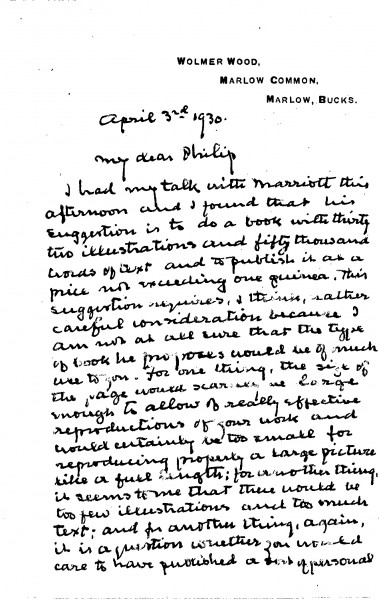 WOLMER WOOD,
MARLOW COMMON,
MARLOW, BUCKS.
April 3rd 1930.
My dear Philip
I had my talk with Marriott this
afternoon and I found that his
suggestion is to do a book with thirty
two illustrations and fifty thousand
words of text and to publish it at a
price not exceeding one guinea. This
suggestion requires, I think, rather
careful consideration because I
am not at all sure that the type
of book he proposes would be of much
use to you. For one thing, the size of
the page would scarcely be large
enough to allow of really effective
reproductions of your work and
would certainly be too small for
reproducing properly a large picture
like a full length; for another thing,
it seems to me that there would be
too few illustrations and too much
text; and for another thing, again,
it is a question whether you would
care to have published a sort of personal